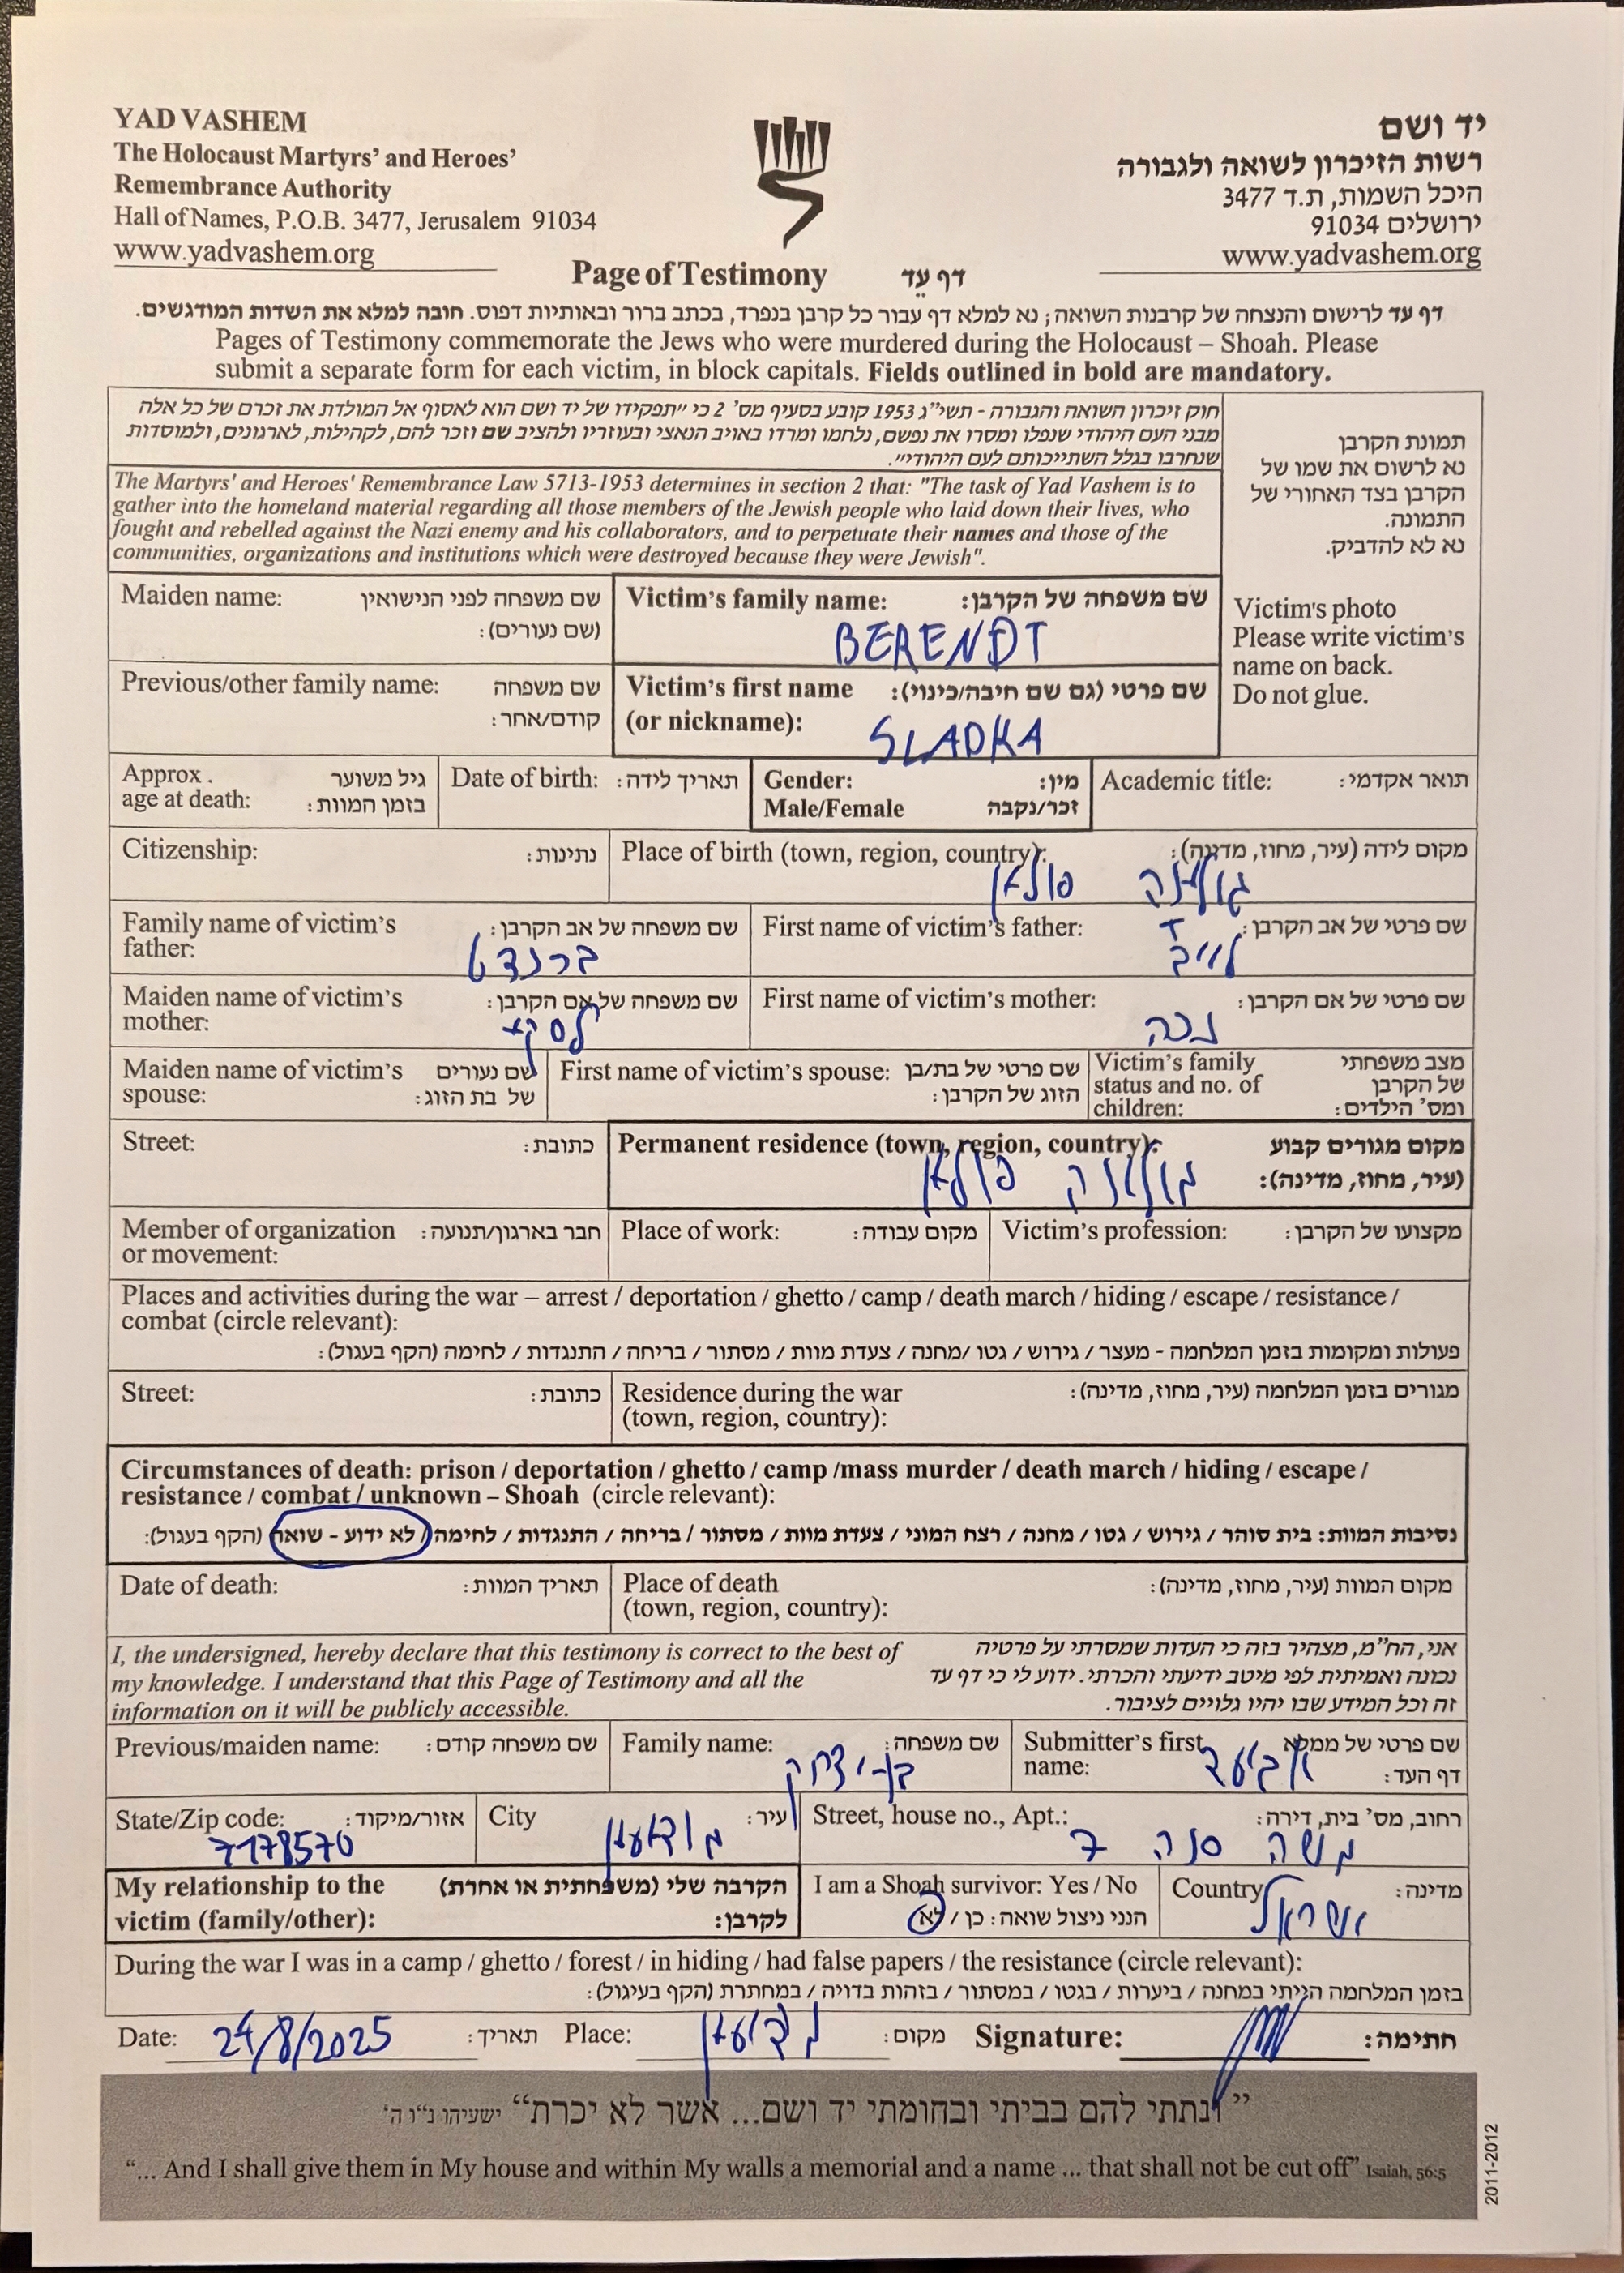 YAD VASHEM
The Holocaust Martyrs’ and Heroes’
Remembrance Authority
Hall of Names, P.O.B. 3477, Jerusalem 91034
www.yadvashem.org
יד ושם
רשות הזיכרון לשואה ולגבורה
היכל השמות, ת.ד 3477
ירושלים 91034
www.yadvashem.org
Page of Testimony דף עֵד
דף עד לרישום והנצחה של קרבנות השואה; נא למלא דף עבור כל קרבן בנפרד, בכתב ברור ובאותיות דפוס. חובה למלא את השדות המודגשים.
Pages of Testimony commemorate the Jews who were murdered during the Holocaust – Shoah. Please
submit a separate form for each victim, in block capitals. Fields outlined in bold are mandatory.
חוק זיכרון השואה והגבורה - תשי״ג 1953 קובע בסעיף מס׳ 2 כי ״תפקידו של יד ושם הוא לאסוף אל המולדת את זכרם של כל אלה
מבני העם היהודי שנפלו ומסרו את נפשם, נלחמו ומרדו באויב הנאצי ובעוזריו ולהציב שם וזכר להם, לקהילות, לארגונים, ולמוסדות
שנחרבו בגלל השתייכותם לעם היהודי״.
The Martyrs' and Heroes' Remembrance Law 5713-1953 determines in section 2 that: "The task of Yad Vashem is to
gather into the homeland material regarding all those members of the Jewish people who laid down their lives, who
fought and rebelled against the Nazi enemy and his collaborators, and to perpetuate their names and those of the
communities, organizations and institutions which were destroyed because they were Jewish".
תמונת הקרבן
נא לרשום את שמו של
הקרבן בצד האחורי של
התמונה.
נא לא להדביק.
Victim's photo
Please write victim's
name on back.
Do not glue.
Maiden name: שם משפחה לפני הנישואין
(שם נעורים):
Victim’s family name: שם משפחה של הקרבן:
BERENDT
Previous/other family name: שם משפחה
קודם/אחר:
Victim’s first name שם פרטי (גם שם חיבה/כינוי):
(or nickname):
SLADKA
Approx. גיל משוער
age at death: בזמן המוות:
Date of birth: תאריך לידה:
Gender: מין:
Male/Female זכר/נקבה
Academic title: תואר אקדמי:
Citizenship: נתינות:
Place of birth (town, region, country): מקום לידה (עיר, מחוז, מדינה):
פולין
Family name of victim’s שם משפחה של אב הקרבן:
father:
ברנדט
First name of victim’s father: שם פרטי של אב הקרבן:
לייב
Maiden name of victim’s שם משפחה של אם הקרבן:
mother:
First name of victim’s mother: שם פרטי של אם הקרבן:
Maiden name of victim’s שם נעורים
spouse: של בת הזוג:
First name of victim’s spouse: שם פרטי של בת/בן
הזוג של הקרבן:
Victim’s family מצב משפחתי
status and no. of של הקרבן
children: ומס׳ הילדים:
Street: כתובת:
Permanent residence (town, region, country): מקום מגורים קבוע
(עיר, מחוז, מדינה):
פולין
Member of organization חבר בארגון/תנועה:
or movement:
Place of work: מקום עבודה:
Victim’s profession: מקצועו של הקרבן:
Places and activities during the war – arrest / deportation / ghetto / camp / death march / hiding / escape / resistance /
combat (circle relevant):
פעולות ומקומות בזמן המלחמה - מעצר / גירוש / גטו /מחנה / צעדת מוות / מסתור / בריחה / התנגדות / לחימה (הקף בעגול):
Street: כתובת:
Residence during the war מגורים בזמן המלחמה (עיר, מחוז, מדינה):
(town, region, country):
Circumstances of death: prison / deportation / ghetto / camp /mass murder / death march / hiding / escape /
resistance / combat / unknown – Shoah (circle relevant):
נסיבות המוות: בית סוהר / גירוש / גטו / מחנה / רצח המוני / צעדת מוות / מסתור / בריחה / התנגדות / לחימה / לא ידוע - שואה (הקף בעגול):
Date of death: תאריך המוות:
Place of death מקום המוות (עיר, מחוז, מדינה):
(town, region, country):
I, the undersigned, hereby declare that this testimony is correct to the best of
my knowledge. I understand that this Page of Testimony and all the
information on it will be publicly accessible.
אני, הח״מ, מצהיר בזה כי העדות שמסרתי על פרטיה
נכונה ואמיתית לפי מיטב ידיעתי והכרתי. ידוע לי כי דף עד
זה וכל המידע שבו יהיו גלויים לציבור.
Previous/maiden name: שם משפחה קודם:
Family name: שם משפחה:
בן-יצחק
Submitter’s first שם פרטי של ממלא
name: דף העד:
אביעד
State/Zip code: אזור/מיקוד:
7178570
City עיר:
מודיעין
Street, house no., Apt.: רחוב, מס׳ בית, דירה:
משה סנה 7
My relationship to the הקרבה שלי (משפחתית או אחרת)
victim (family/other): לקרבן:
I am a Shoah survivor: Yes / No
הנני ניצול שואה: כן / לא
Country מדינה:
ישראל
During the war I was in a camp / ghetto / forest / in hiding / had false papers / the resistance (circle relevant):
בזמן המלחמה הייתי במחנה / ביערות / בגטו / במסתור / בזהות בדויה / במחתרת (הקף בעיגול):
Date: 24/8/2025 תאריך: Place: מודיעין מקום: Signature: חתימה:
”ונתתי להם בביתי ובחומתי יד ושם... אשר לא יכרת“ ישעיהו נ״ו ה׳
“... And I shall give them in My house and within My walls a memorial and a name ... that shall not be cut off” Isaiah, 56:5
2011-2012